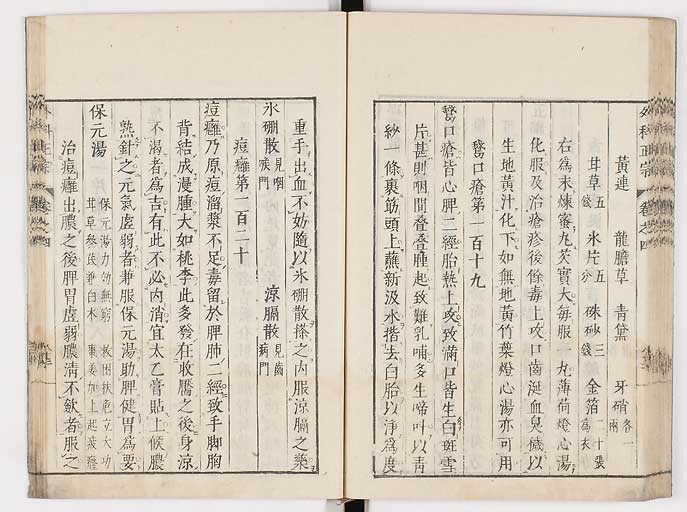 外科正宗 卷之四
黃連 龍膽草 青黛 牙硝各一兩
甘草五錢 氷片五分 硃砂三錢 金箔二十張為衣
右為末煉蜜九芡實大每服一丸薄荷燈心湯
化服及治瘡疹後餘毒上攻口齒涎血臭穢以
生地黃汁化下如無地黃竹葉燈心湯亦可用
鵞口瘡第一百十九
鵞口瘡皆心脾二經胎熱上攻致滿口皆生白斑雪
片甚則咽間疊疊腫起致難乳哺多生啼叫以青
紗一條裹筯頭上蘸新汲水揩去白胎以淨為度
重手出血不妨隨以氷硼散搽之內服涼膈之藥
氷硼散見咽喉門 涼膈散見齒病門
痘癰第一百二十
痘癰乃原痘溜漿不足毒留於脾肺二經致手脚胸
背結成漫腫大如桃李此多發在收靨之後身涼
不渴者為吉有此不必內消宜太乙膏貼上候膿
熟針之元氣虛弱者兼服保元湯助脾健胃為要
保元湯 保元湯力効無窮 救困扶危立大功
甘草參芪兼白木 棗姜加上起疲癃
治痘癰出膿之後脾胃虛弱膿清不歛者服之